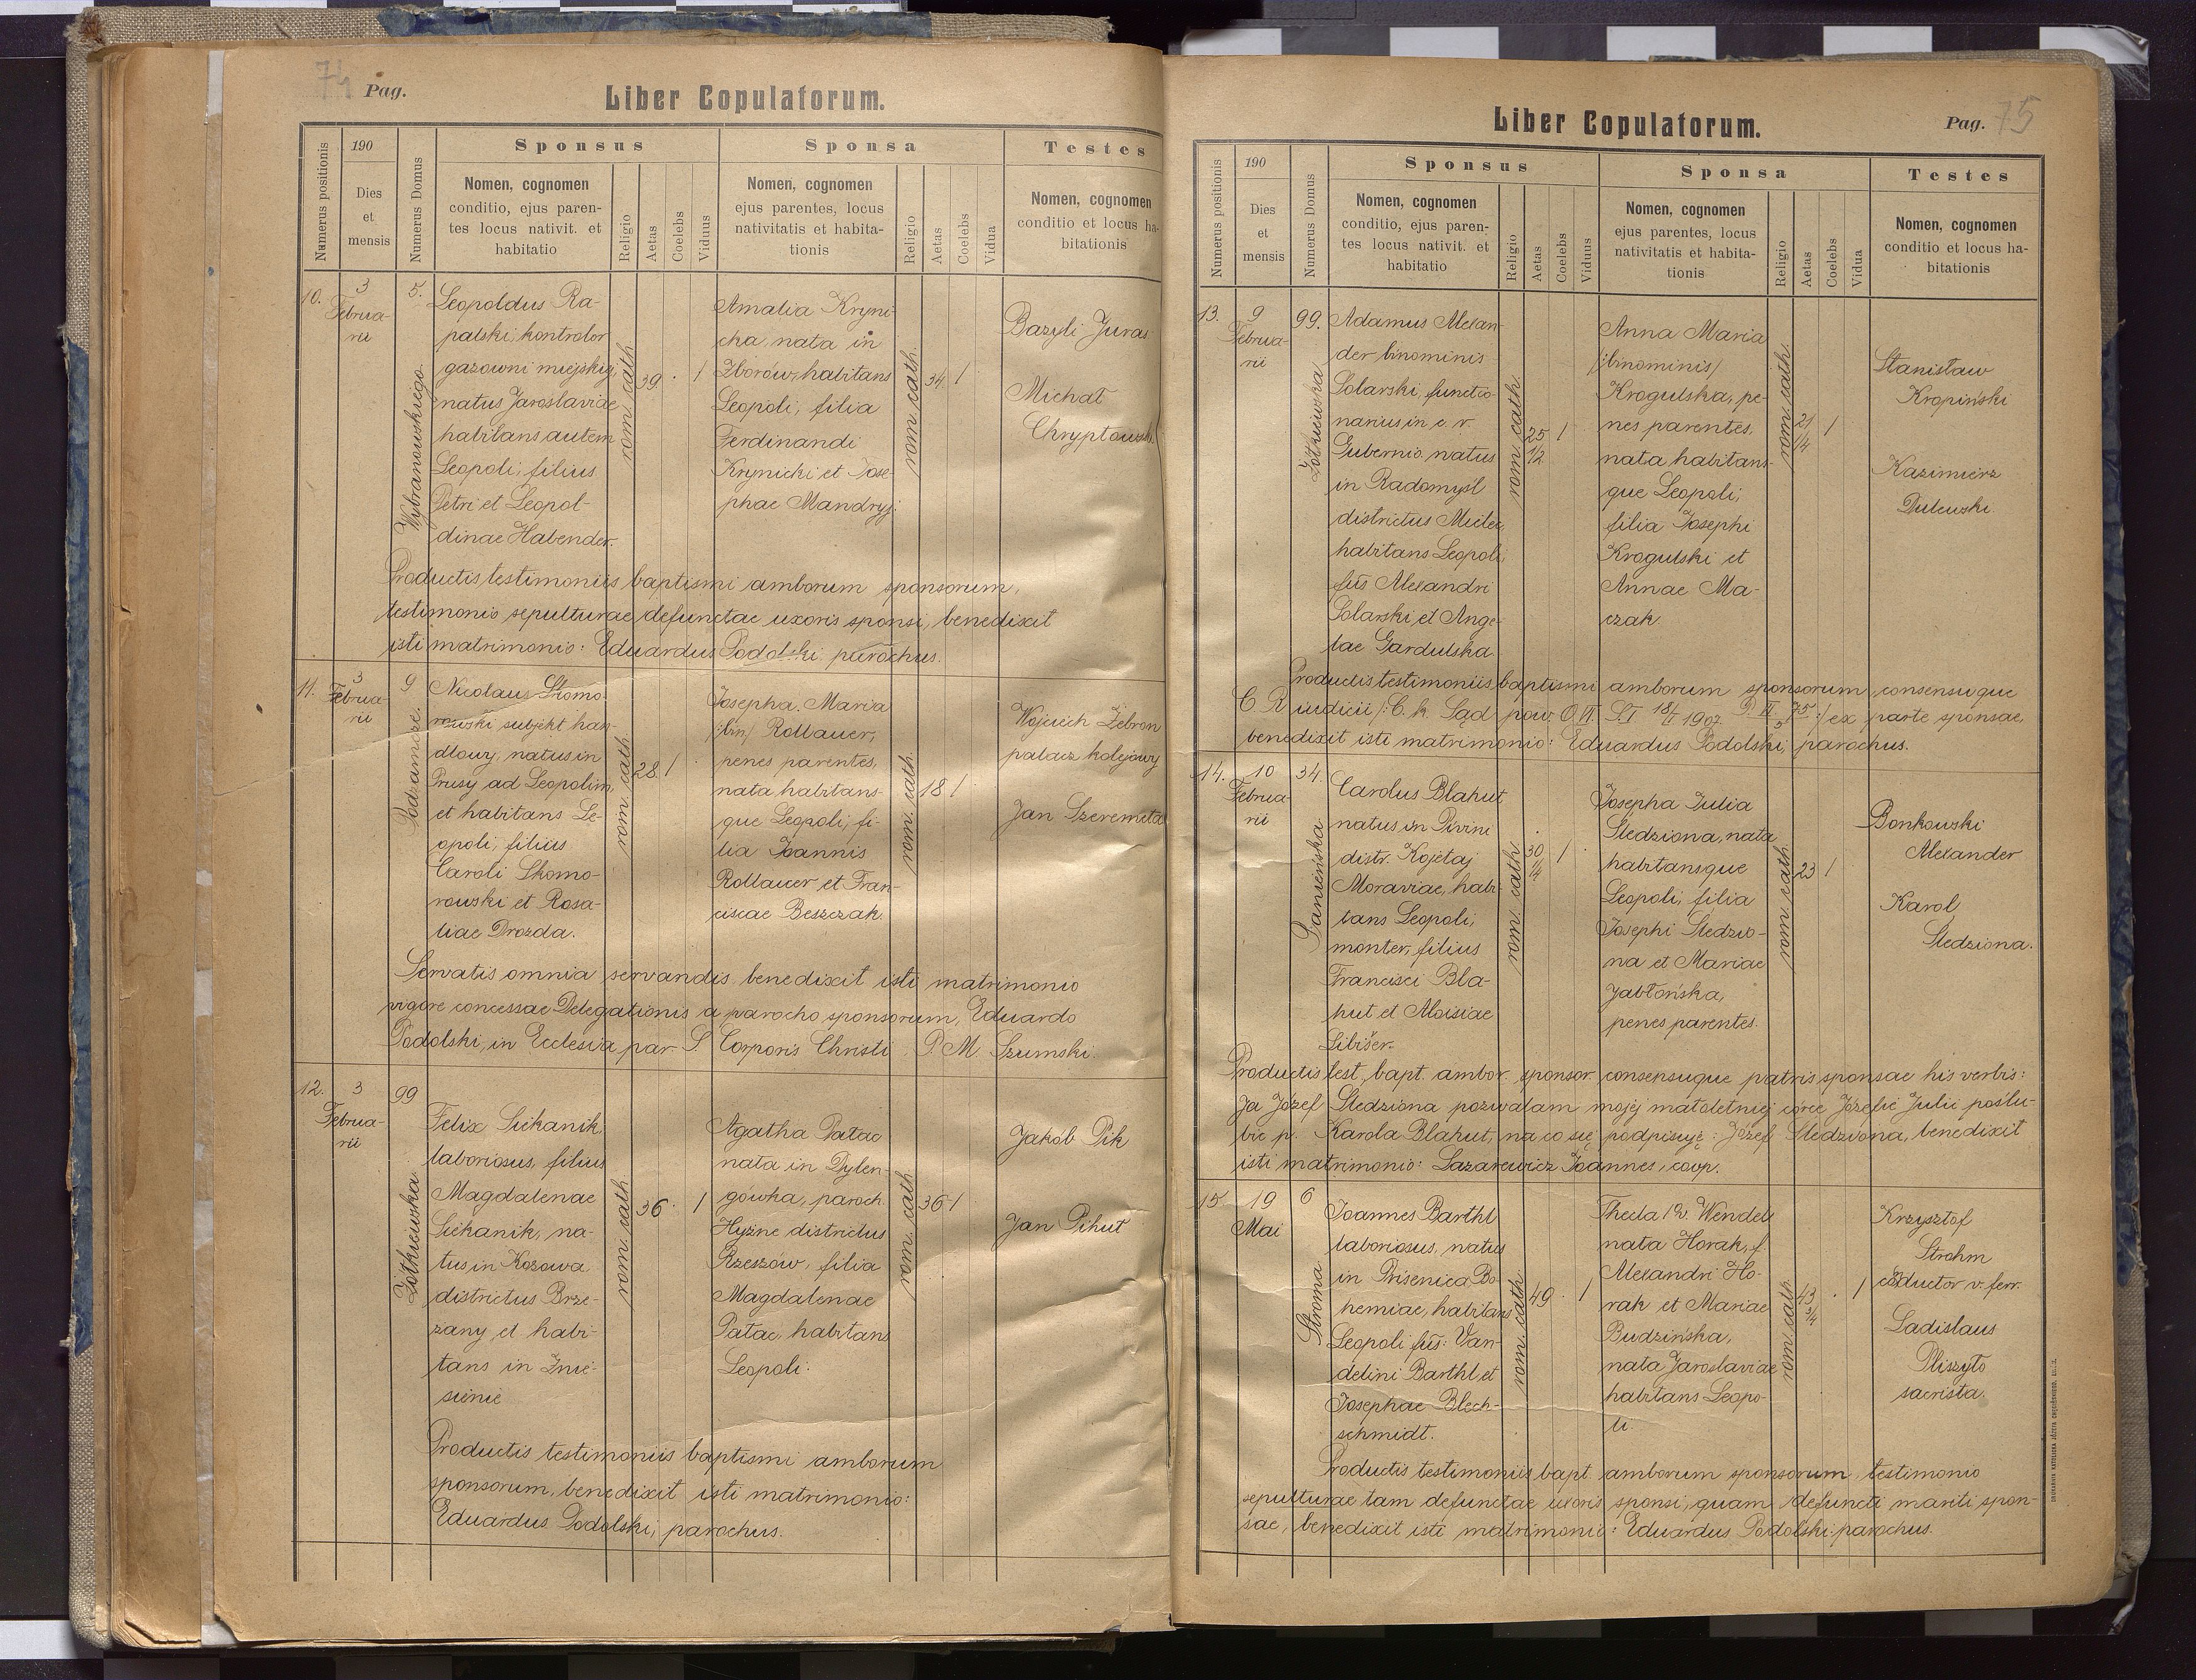 74 Pag.
Liber Copulatorum.
Numerus positionis
190
Dies
et
mensis
Numerus Domus
Sponsus
Nomen, cognomen
conditio, ejus paren-
tes locus nativit. et
habitatio
Religio
Aetas
Coelebs
Viduus
Sponsa
Nomen, cognomen
ejus parentes, locus
nativitatis et habita-
tionis
Religio
Aetas
Coelebs
Vidua
Testes
Nomen, cognomen
conditio et locus ha-
bitationis
10.
3
Februa-
rii
5.
Wybranowskiego.
Leopoldus Ra-
palski, kontrolor
gazowni miejskiej,
natus Jaroslaviae
habitans autem
Leopoli; filius
Petri et Leopol-
dinae Habender.
rom. cath.
39
1
Amalia Kryni-
cka, nata in
Zborów, habitans
Leopoli, filia
Ferdinandi
Krynicki et Jose-
phae Mandryj.
rom. cath.
34
1
Bazyli Juras
Michał
Productis testimoniis baptismi amborum sponsorum,
testimonio sepulturae defunctae uxoris sponsi, benedixit
isti matrimonio: Eduardus Podolski parochus.
11.
3
Februa-
rii
9
Podzamcze.
Nicolaus Skomo-
rowski subjekt han-
dlowy, natus in
Prusy ad Leopolim,
et habitans Le-
opoli, filius
Caroli Skomo-
rowski et Rosa-
liae Drozda.
rom. cath.
28.
1
Josepha, Maria
/:bin/ Rollauer,
penes parentes,
nata habitans-
que Leopoli, fi-
lia Joannis
Rollauer et Fran-
ciscae Beszczak
rom. cath.
18
1
Wojciech Żebron
palacz kolejowy
Jan Szeremeta
Servatis omnia servandis benedixit isti matrimonio
vigore concessae Delegationis a parocho sponsorum, Eduardo
Podolski, in Ecclesia par. S. Corporis Christi P. M. Szumski.
12.
3
Februa-
rii
99
Żółkiewska
Felix Siekanik,
laboriosus, filius
Magdalenae
Siekanik, na-
tus in Kozowa,
districtus Brze-
zany et habi-
tans in Znie-
sienie
rom. cath
36
1
Agatha Patac
nata in Dylen-
gówka, paroch.
Hyżne districtus
Rzeszów, filia
Magdalenae
Patac, habitans
Leopoli.
rom. cath
36
1
Jakób Pik
Jan Pihut
Productis testimoniis baptismi amborum
sponsorum, benedixit isti matrimonio:
Eduardus Podolski, parochus.
Liber Copulatorum.
Pag. 75
Numerus positionis
190
Dies
et
mensis
Numerus Domus
Sponsus
Nomen, cognomen
conditio, ejus paren-
tes locus nativit. et
habitatio
Religio
Aetas
Coelebs
Viduus
Sponsa
Nomen, cognomen
ejus parentes, locus
nativitatis et habita-
tionis
Religio
Aetas
Coelebs
Vidua
Testes
Nomen, cognomen
conditio et locus ha-
bitationis
13.
9
Februa-
rii
99.
Żółkiewska
Adamus Alexan-
der binominis
Solarski, functio-
narius in c. r.
Gubernio, natus
in Radomyśl
districtus Mielec,
habitans Leopoli,
fius Alexandri
Solarski et Ange-
lae Gardulska.
rom. cath.
25 1/2
1
Anna Maria
/:binominis/
Krogulska, pe-
nes parentes,
nata habitans-
que Leopoli;
filia Josephi
Krogulski et
Annae Ma-
czak.
rom. cath.
21 1/4
1
Stanisław
Kropiński
Kazimierz
Dulewski.
Productis testimoniis baptismi amborum sponsorum, consensuque
C. R. iudicii /:C. k. Sąd pow. O. VI. S. I 18/I 1907 P. VI 75/5 :/ ex parte sponsae,
benedixit isti matrimonio: Eduardus Podolski, parochus.
14.
10
Februa-
rii
34.
Panieńska
Carolus Blahut
natus in Pivini
distr. Kojetaj
Moraviae, habi-
tans Leopoli,
monter, filius
Francisci Bla-
hut et Aloisiae
Libišer.
rom. cath.
30 1/4
1
Josepha Julia
Śledziona, nata
habitansque
Leopoli, filia
Josephi Śledzio-
na et Mariae
Jabłońska,
penes parentes.
rom. cath.
23
1
Bonkowski
Alexander
Karol
Śledziona.
Productis test. bapt. ambor. sponsor. consensuque patris sponsae his verbis:
Ja Józef Śledziona pozwalam mojej małoletniej córce Józefie Julii poślu-
bić p. Karola Blahut, na co się podpisuję: Józef Śledziona, benedixit
isti matrimonio: Lazarewicz Joannes, coop.
15.
19
Mai
6
Stroma
Joannes Barthl
laboriosus, natus
in Prisenica Bo-
hemiae, habitans
Leopoli fius: Van-
delini Barthl et
Josephae Blech-
schmidt.
rom. cath.
49
1
Thecla 1 v. Wendel
nata Horak, f.
Alexandri Ho-
rak et Mariae
Budzińska,
nata Jaroslaviae
habitans Leopo-
li.
rom. cath.
43 3/4
1
Krzysztof
Strohm
conductor v. ferr.
Ladislaus
Pliszyło
sacrista.
Productis testimoniis bapt. amborum sponsorum, testimonio
sepulturae tam defunctae uxoris sponsi, quam defuncti mariti spon-
sae, benedixit isti matrimonio: Eduardus Podolski parochus.